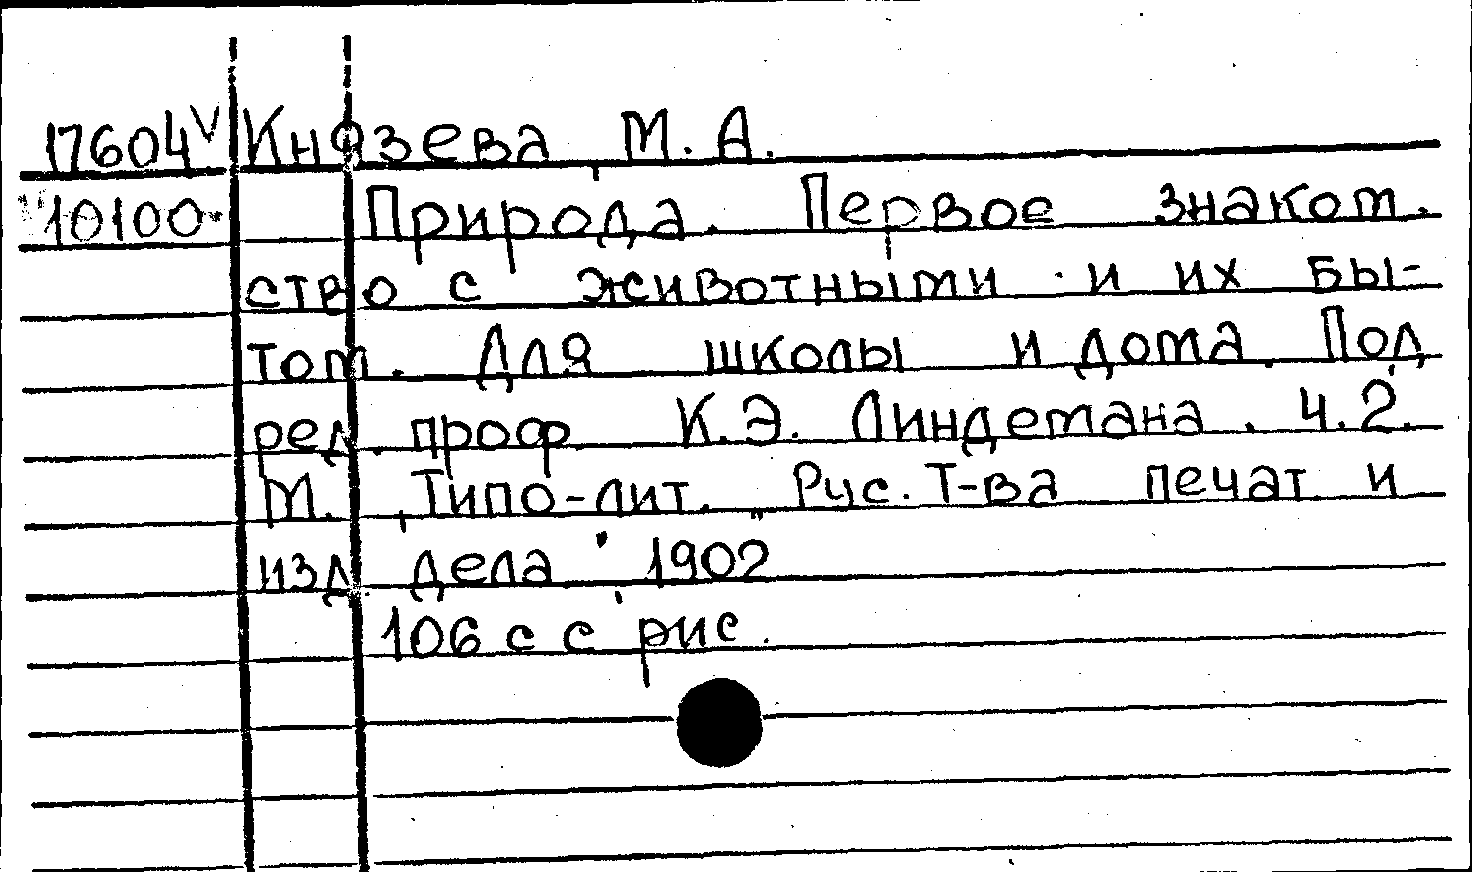 17604 V Князева, М. А.
10100 Природа. Первое знаком.
ство с животными и их бы-
том. Для школы и дома. Под
ред. проф. К.Э. Линдемана. Ч.2.
М., Типо-лит. "Рус. Т-ва печат и
изд дела", 1902
106 с с рис.